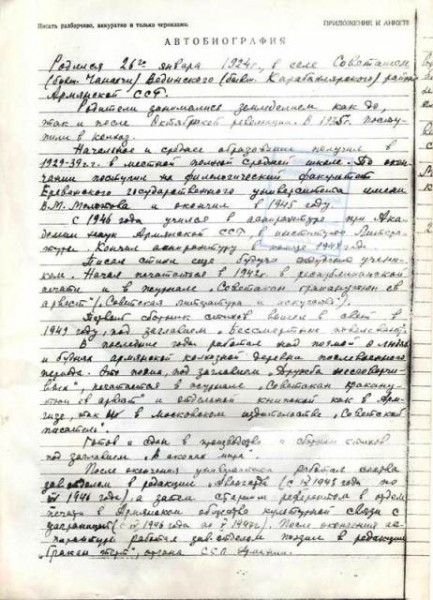 Писать разборчиво, аккуратно и только чернилами.
ПРИЛОЖЕНИЕ К АНКЕТЕ
АВТОБИОГРАФИЯ
Родился 26го января 1924г., в селе Советашен
(бывш. Чанахчи) Вединского (бывш. Карабахлярского) района
Армянской ССР.
Родители занимались земледелием как до,
так и после Октябрьской революции. В
пили в колхоз.
Начальное и среднее образование получил в
в местной полной средней школе. По окон-
чании поступил на филологический факультет
Ереванского государственного университета имени
В.М. Молотова и окончил в 1945 году.
С 1946 года учился в аспирантуре при Ака-
демии наук Армянской ССР, в институте Литера-
туры. Кончил аспирантуру в конце 1948 года.
Писал стихи ещё будучи учени-
ком. Начал печататься в 1942г. в республиканской
печати и в журнале „Советакан граканутюн ев
арвест" („Советская литература и искусство").
Первый сборник стихов вышел в свет в
1949 году, под заглавием „Бессмертные
В последние годы работал над поэмой о людях
и буднях армянской колхозной деревни послевоенного
периода. Эта поэма, под заглавием „Дружба
печатается в журнале „Советакан гракану-
тюн ев арвест" и отдельной книжкой как в Арм-
гизе, так и в московском издательстве „Советский
писатель".
Готов и сдан в производство и сборник стихов
под заглавием „В окопах мира".
После окончания университета работал сперва
зав. отделом в редакции „Авангард" (с IX 1945 года по
1946 года), а затем старшим референтом в отделе
печати в Армянском обществе культурной связи с
заграницей (с 1946 года по V 1947г.). После окончания ас-
пирантуры работал зав. отделом поэзии в редакции
„Гракан терт", органа ССП Армении.